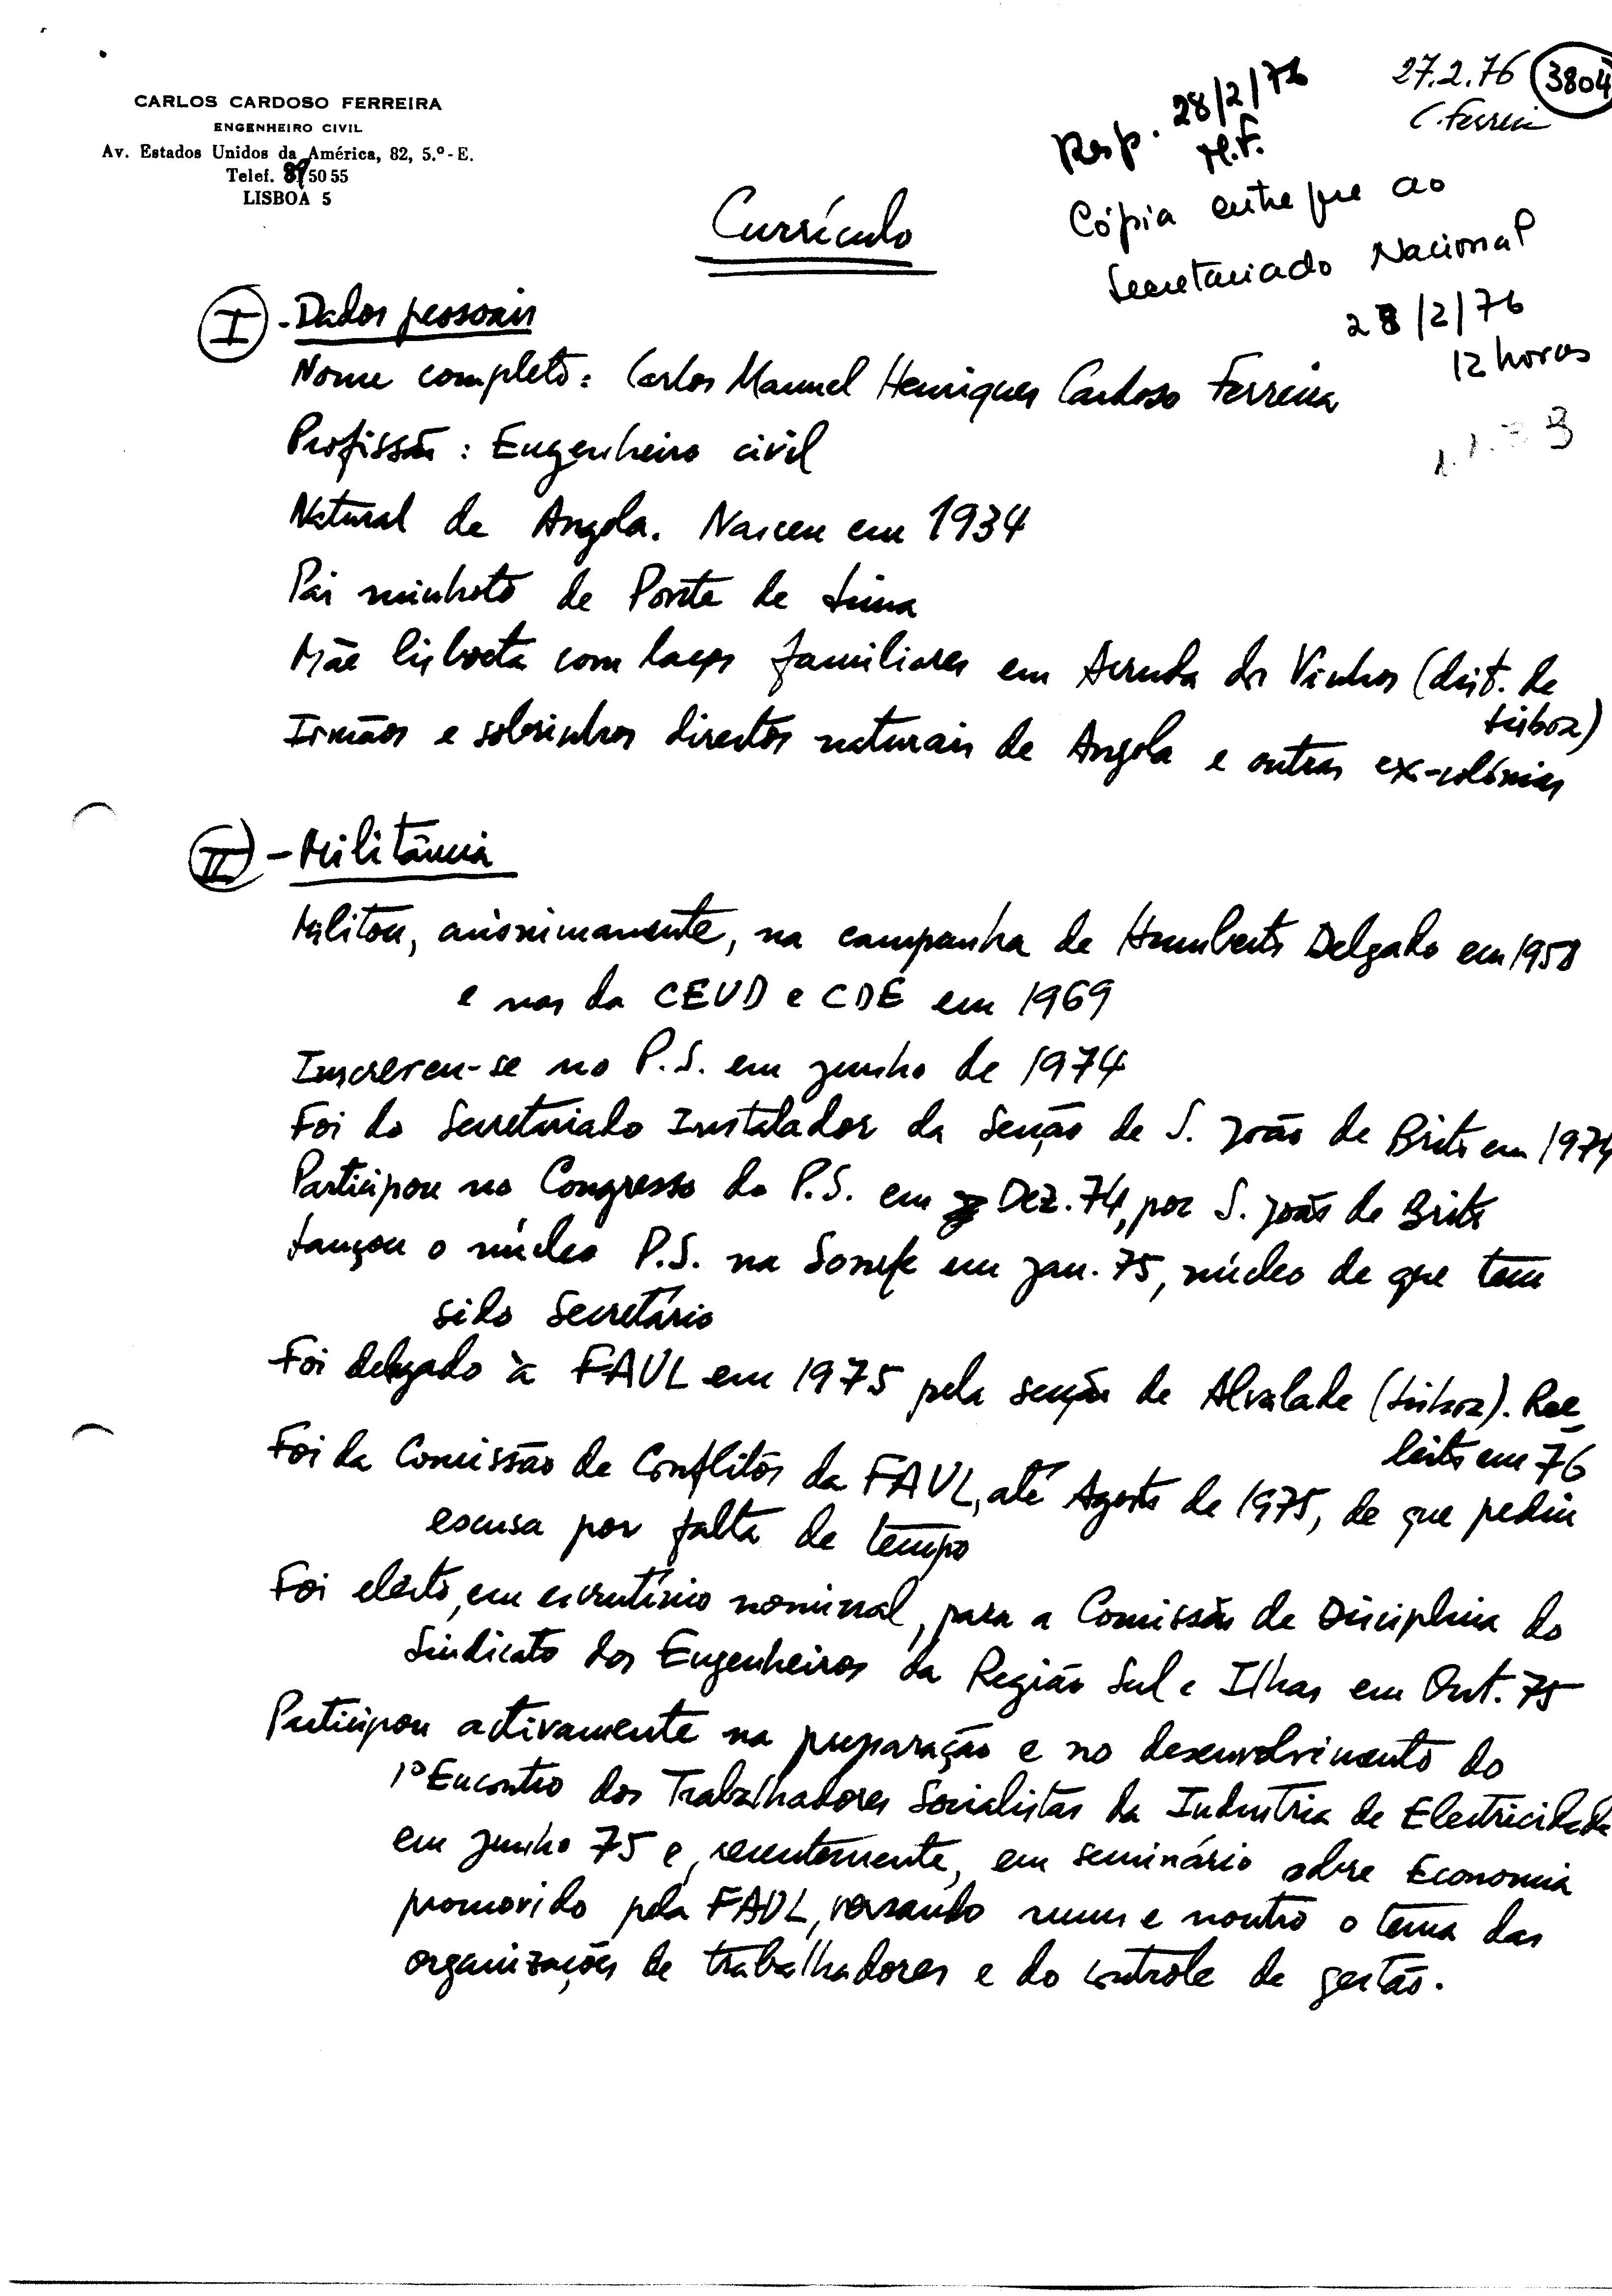 CARLOS CARDOSO FERREIRA
ENGENHEIRO CIVIL
Av. Estados Unidos da América, 82, 5.º-E.
Telef. 89 50 55
LISBOA 5
27.2.76
3804
C. Ferreira
Resp. 28/2/76
M.F.
Cópia entregue ao
Secretariado Nacional
28/2/76
12 horas
Currículo
I - Dados pessoais
Nome completo: Carlos Manuel Henriques Cardoso Ferreira
Profissão: Engenheiro civil
Natural de Angola. Nasceu em 1934
Pai minhoto de Ponte de Lima
Mãe lisboeta com laços familiares em Arruda dos Vinhos (dist. de
Lisboa)
Irmãos e sobrinhos directos naturais de Angola e outras ex-colónias
II - Militância
Militou, anònimamente, na campanha de Humberto Delgado em 1958
e nas da CEUD e CDE em 1969
Inscreveu-se no P.S. em junho de 1974
Foi do Secretariado Instalador da Secção de S. João de Brito em 1974
Participou no Congresso do P.S. em Dez. 74, por S. João de Brito
Lançou o núcleo P.S. na Sonefe em jan. 75, núcleo de que tem
sido Secretário
Foi delegado à FAUL em 1975 pela secção de Alvalade (Lisboa). Ree-
leito em 76
Foi da Comissão de Conflitos da FAUL, até Agosto de 1975, de que pediu
escusa por falta de tempo
Foi eleito, em escrutínio nominal, para a Comissão de Disciplina do
Sindicato dos Engenheiros da Região Sul e Ilhas em Out. 75
Participou activamente na preparação e no desenvolvimento do
1º Encontro dos Trabalhadores Socialistas da Industria de Electricidade
em junho 75 e, recentemente, em seminário sobre Economia
promovido pela FAUL, versando num e noutro o tema das
organizações de trabalhadores e do controle de gestão.